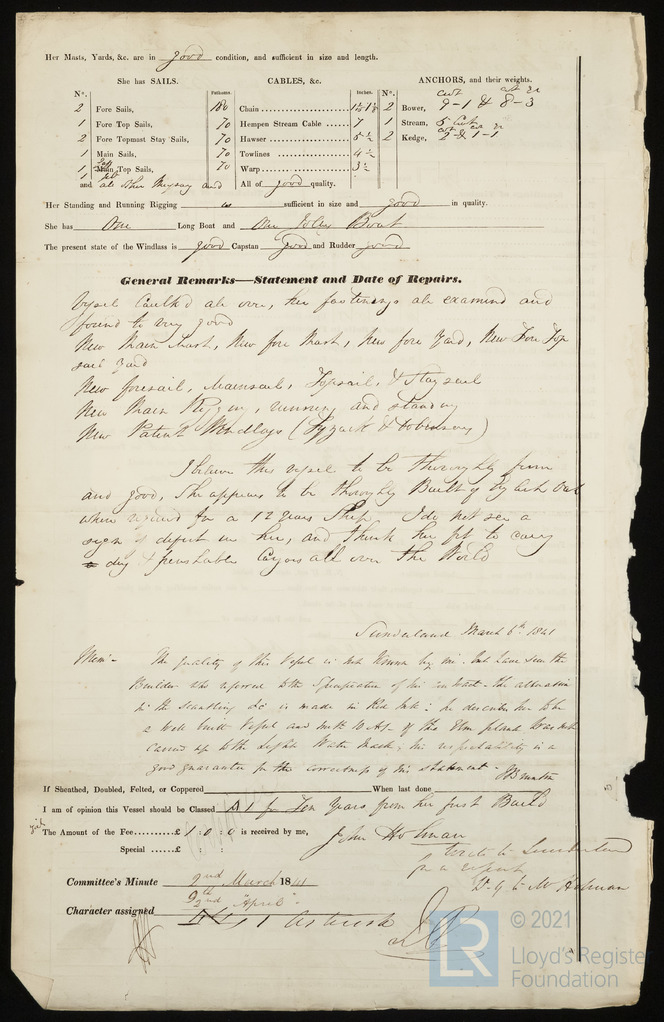 Her Masts, Yards, &c. are in good condition, and sufficient in size and length.
She has SAILS. CABLES, &c. ANCHORS, and their weights.
N°. Fathoms. Inches. N°. cwt cwt
2 Fore Sails, 180 Chain 2 Bower, 9-1 & 8-3
1 Fore Top Sails, 70 Hempen Stream Cable 7 1 Stream, 5 Cwt
2 Fore Topmast Stay Sails, 70 Hawser 5½ 2 Kedge, 2 & 1-1
1 Main Sails, 70 Towlines 4½
1 Top Sails, 70 Warp 3½
1 Jib
and all other and All of good quality.
Her Standing and Running Rigging is sufficient in size and good in quality.
She has One Long Boat and One Boat
The present state of the Windlass is good Capstan good and Rudder good
General Remarks—Statement and Date of Repairs.
Vessel Caulkd all over, her fastenings all examind and
found to very good
New Main Mast, New fore Mast, New fore Yard, New Fore Top
sail Yard
New foresail, Mainsail, Topsail, & Staysail
New Main Rigging, running and standing
New Patent Windlass (Tyzack & Dobinsons)
I believe this vessel to be thoroughly firm
and good, She appears to be thoroughly Built of
where required for a 12 Years Ship I do not see a
sign of defect in her, and think her fit to carry
dry & perishable Cargoes all over the World
Sunderland March 6th 1841
Mem- The quality of this Vessel is not Known by me. but have seen the
Builder who referred to the Specification of his contract - the alteration
in the scantling &c is made in Red Ink; he describes her to be
a well built Vessel and with of the Elm plank was not
carried up to the Light Water Mark; his respectability is a
good guarantee for the correctness of his statement-
If Sheathed, Doubled, Felted, or Coppered When last done
I am of opinion this Vessel should be Classed A 1 for Ten Years from her first Build
The Amount of the Fee £ 1 : 0 : 0 is received by me, John Holman
Special £ : :
Wrote to Sunderland
for a report
Committee's Minute 2nd March 1841
9th
2nd "April"
Character assigned 1 Asterisk
© 2021
LR
Lloyd's Register
Foundation